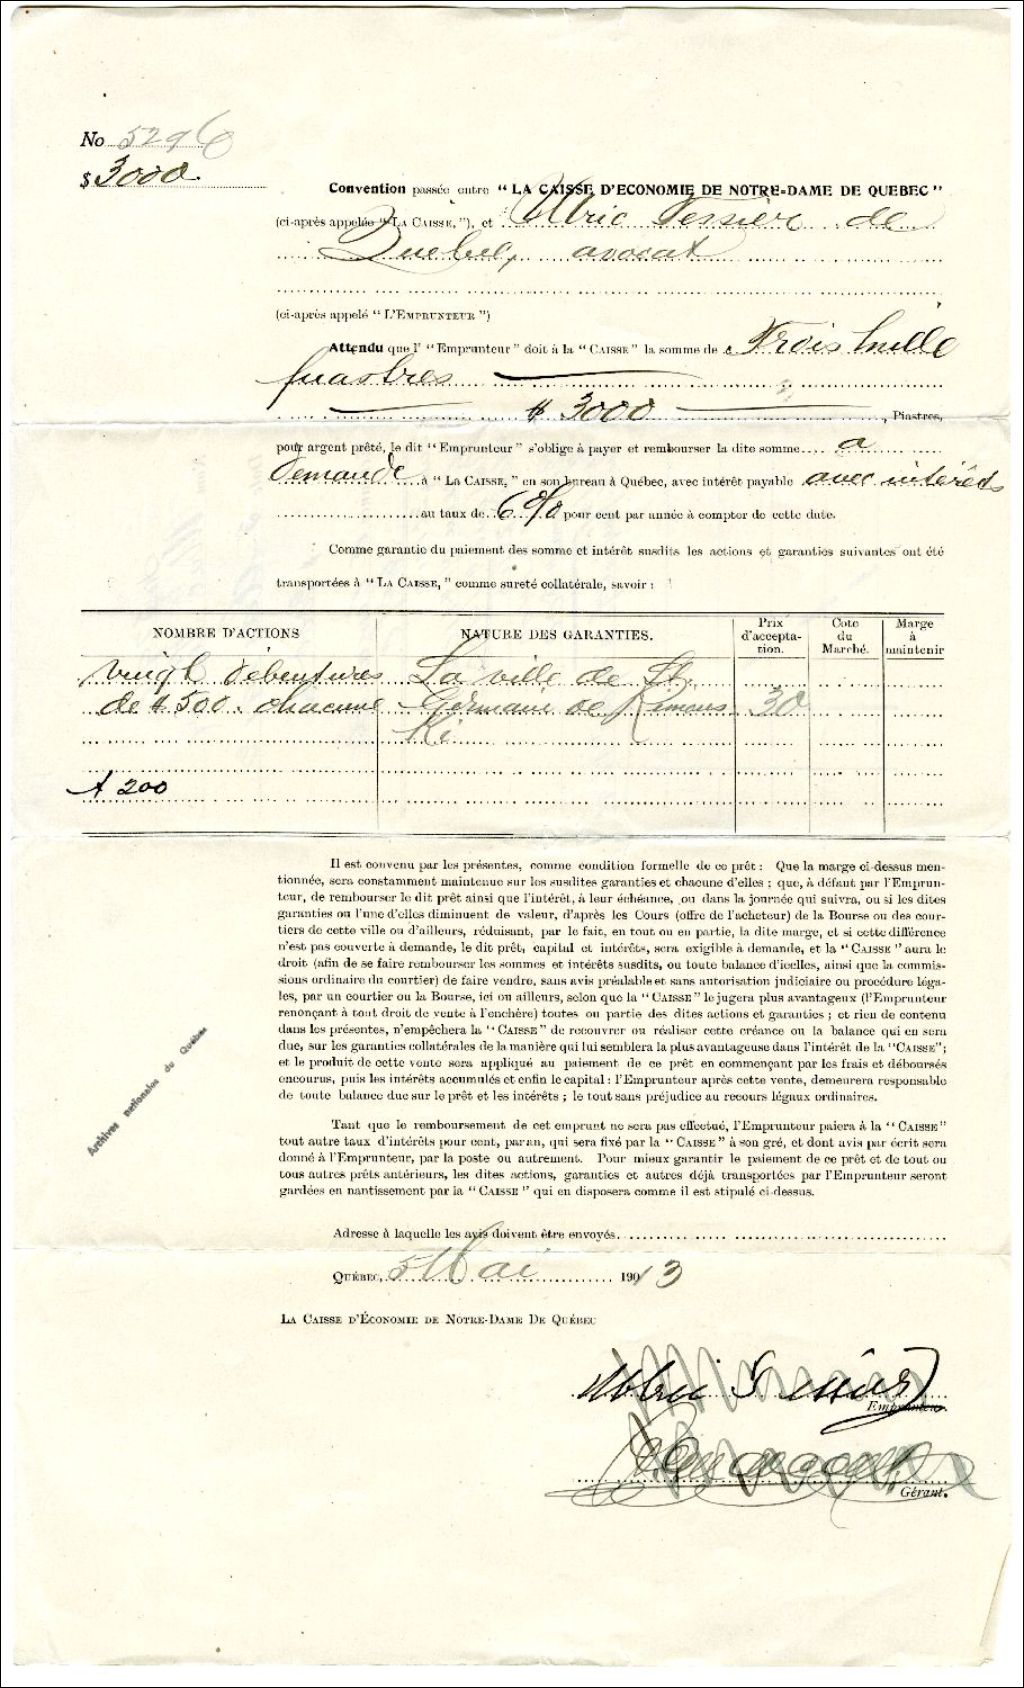 No 5296
$ 3000.
Convention passée entre " LA CAISSE D'ECONOMIE DE NOTRE-DAME DE QUEBEC "
(ci-après appelée " LA CAISSE, "), et Ulric Tessier de
Quebec, avocat
(ci-après appelé " L'EMPRUNTEUR ")
Attendu que l' " Emprunteur " doit à la " CAISSE " la somme de Trois mille
piastres
$ 3000 , Piastres,
pour argent prêté, le dit " Emprunteur " s'oblige à payer et rembourser la dite somme a
demande à " LA CAISSE, " en son bureau à Québec, avec intérêt payable avec intérêts
au taux de 6% pour cent par année à compter de cette date.
Comme garantie du paiement des somme et intérêt susdits les actions et garanties suivantes ont été
transportées à " LA CAISSE, " comme sureté collatérale, savoir :
NOMBRE D'ACTIONS NATURE DES GARANTIES. Prix d'accepta-tion. Cote du Marché. Marge à maintenir
vingt débentures La ville de St.
de $500. chacune Germain de Rimous 30
Ki
A 200
Il est convenu par les présentes, comme condition formelle de ce prêt : Que la marge ci-dessus men-
tionnée, sera constamment maintenue sur les susdites garanties et chacune d'elles ; que, à défaut par l'Emprun-
teur, de rembourser le dit prêt ainsi que l'intérêt, à leur échéance, ou dans la journée qui suivra, ou si les dites
garanties ou l'une d'elles diminuent de valeur, d'après les Cours (offre de l'acheteur) de la Bourse ou des cour-
tiers de cette ville ou d'ailleurs, réduisant, par le fait, en tout ou en partie, la dite marge, et si cette différence
n'est pas couverte à demande, le dit prêt, capital et intérêts, sera exigible à demande, et la " CAISSE " aura le
droit (afin de se faire rembourser les sommes et intérêts susdits, ou toute balance d'icelles, ainsi que la commis-
sions ordinaire du courtier) de faire vendre, sans avis préalable et sans autorisation judiciaire ou procédure léga-
les, par un courtier ou la Bourse, ici ou ailleurs, selon que la " CAISSE " le jugera plus avantageux (l'Emprunteur
renonçant à tout droit de vente à l'enchère) toutes ou partie des dites actions et garanties ; et rien de contenu
dans les présentes, n'empêchera la " CAISSE " de recouvrer ou réaliser cette créance ou la balance qui en sera
due, sur les garanties collatérales de la manière qui lui semblera la plus avantageuse dans l'intérêt de la "CAISSE" ;
et le produit de cette vente sera appliqué au paiement de ce prêt en commençant par les frais et déboursés
encourus, puis les intérêts accumulés et enfin le capital : l'Emprunteur après cette vente, demeurera responsable
de toute balance due sur le prêt et les intérêts ; le tout sans préjudice au recours légaux ordinaires.
Archives nationales du Québec
Tant que le remboursement de cet emprunt ne sera pas effectué, l'Emprunteur paiera à la " CAISSE "
tout autre taux d'intérêts pour cent, par an, qui sera fixé par la " CAISSE " à son gré, et dont avis par écrit sera
donné à l'Emprunteur, par la poste ou autrement. Pour mieux garantir le paiement de ce prêt et de tout ou
tous autres prêts antérieurs, les dites actions, garanties et autres déjà transportées par l'Emprunteur seront
gardées en nantissement par la " CAISSE " qui en disposera comme il est stipulé ci-dessus.
Adresse à laquelle les avis doivent être envoyés
QUÉBEC, 5 Mai 1913
LA CAISSE D'ÉCONOMIE DE NOTRE-DAME DE QUÉBEC
Ulric Tessier
Emprunteur.
Gérant.